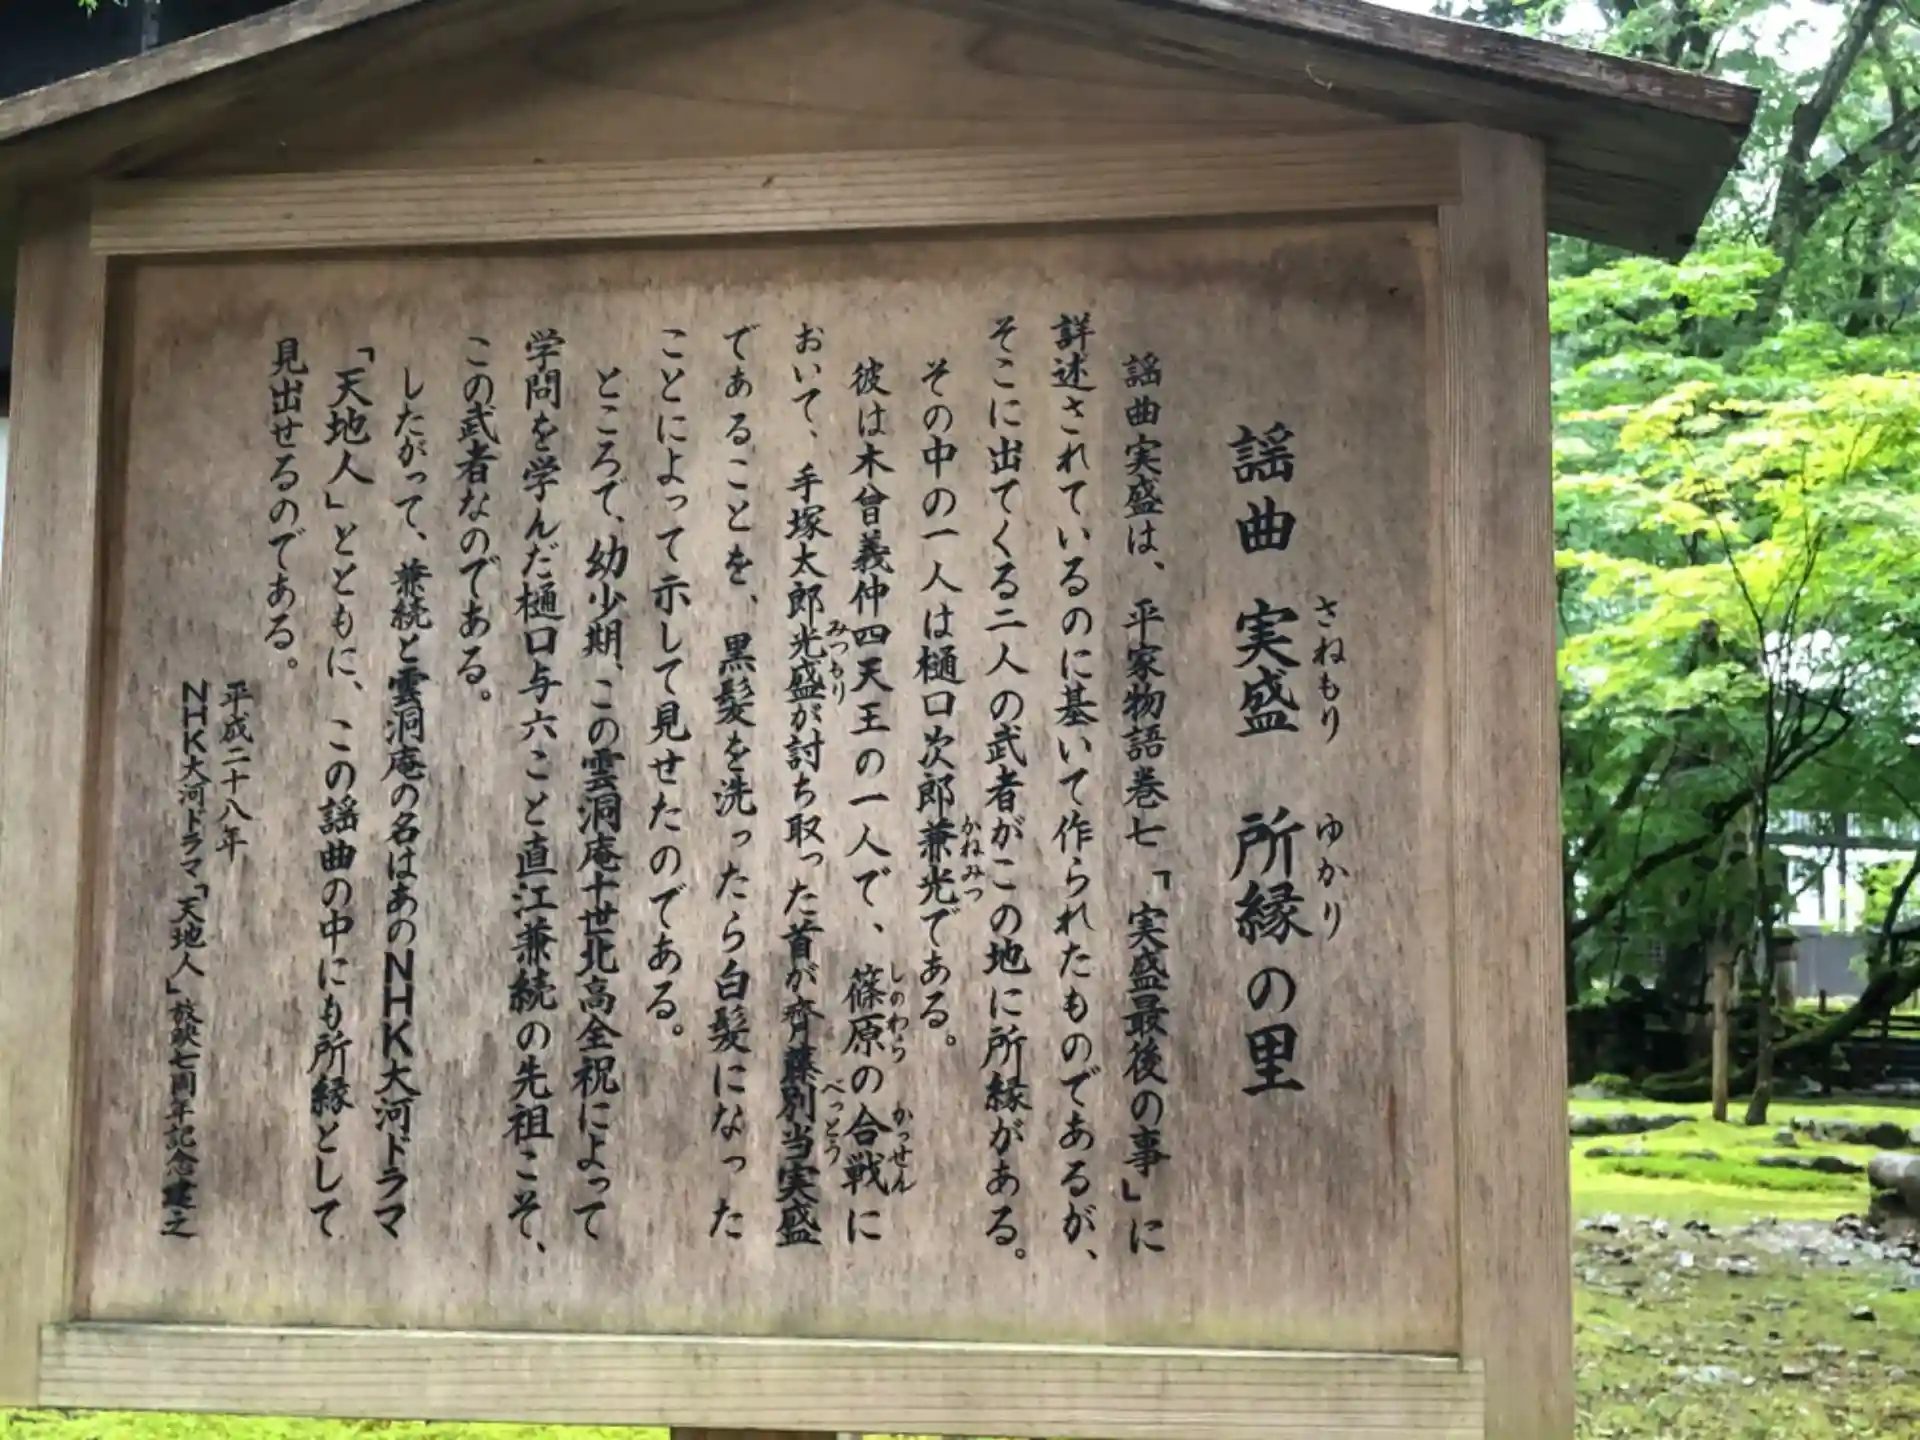 謡曲 実盛 所縁の里
さねもり ゆかり
謡曲実盛は、平家物語巻七「実盛最後の事」に
詳述されているのに基いて作られたものであるが、
そこに出てくる二人の武者がこの地に所縁がある。
その中の一人は樋口次郎兼光である。
かねみつ
彼は木曾義仲四天王の一人で、篠原の合戦に
しのわら かっせん
おいて、手塚太郎光盛が討ち取った首が齊藤別当実盛
みつもり べっとう
であることを、黒髪を洗ったら白髪になった
ことによって示して見せたのである。
ところで、幼少期、この雲洞庵十世北高全祝によって
学問を学んだ樋口与六こと直江兼続の先祖こそ、
この武者なのである。
したがって、兼続と雲洞庵の名はあのNHK大河ドラマ
「天地人」とともに、この謡曲の中にも所縁として
見出せるのである。
平成二十八年
NHK大河ドラマ「天地人」放映七周年記念建之